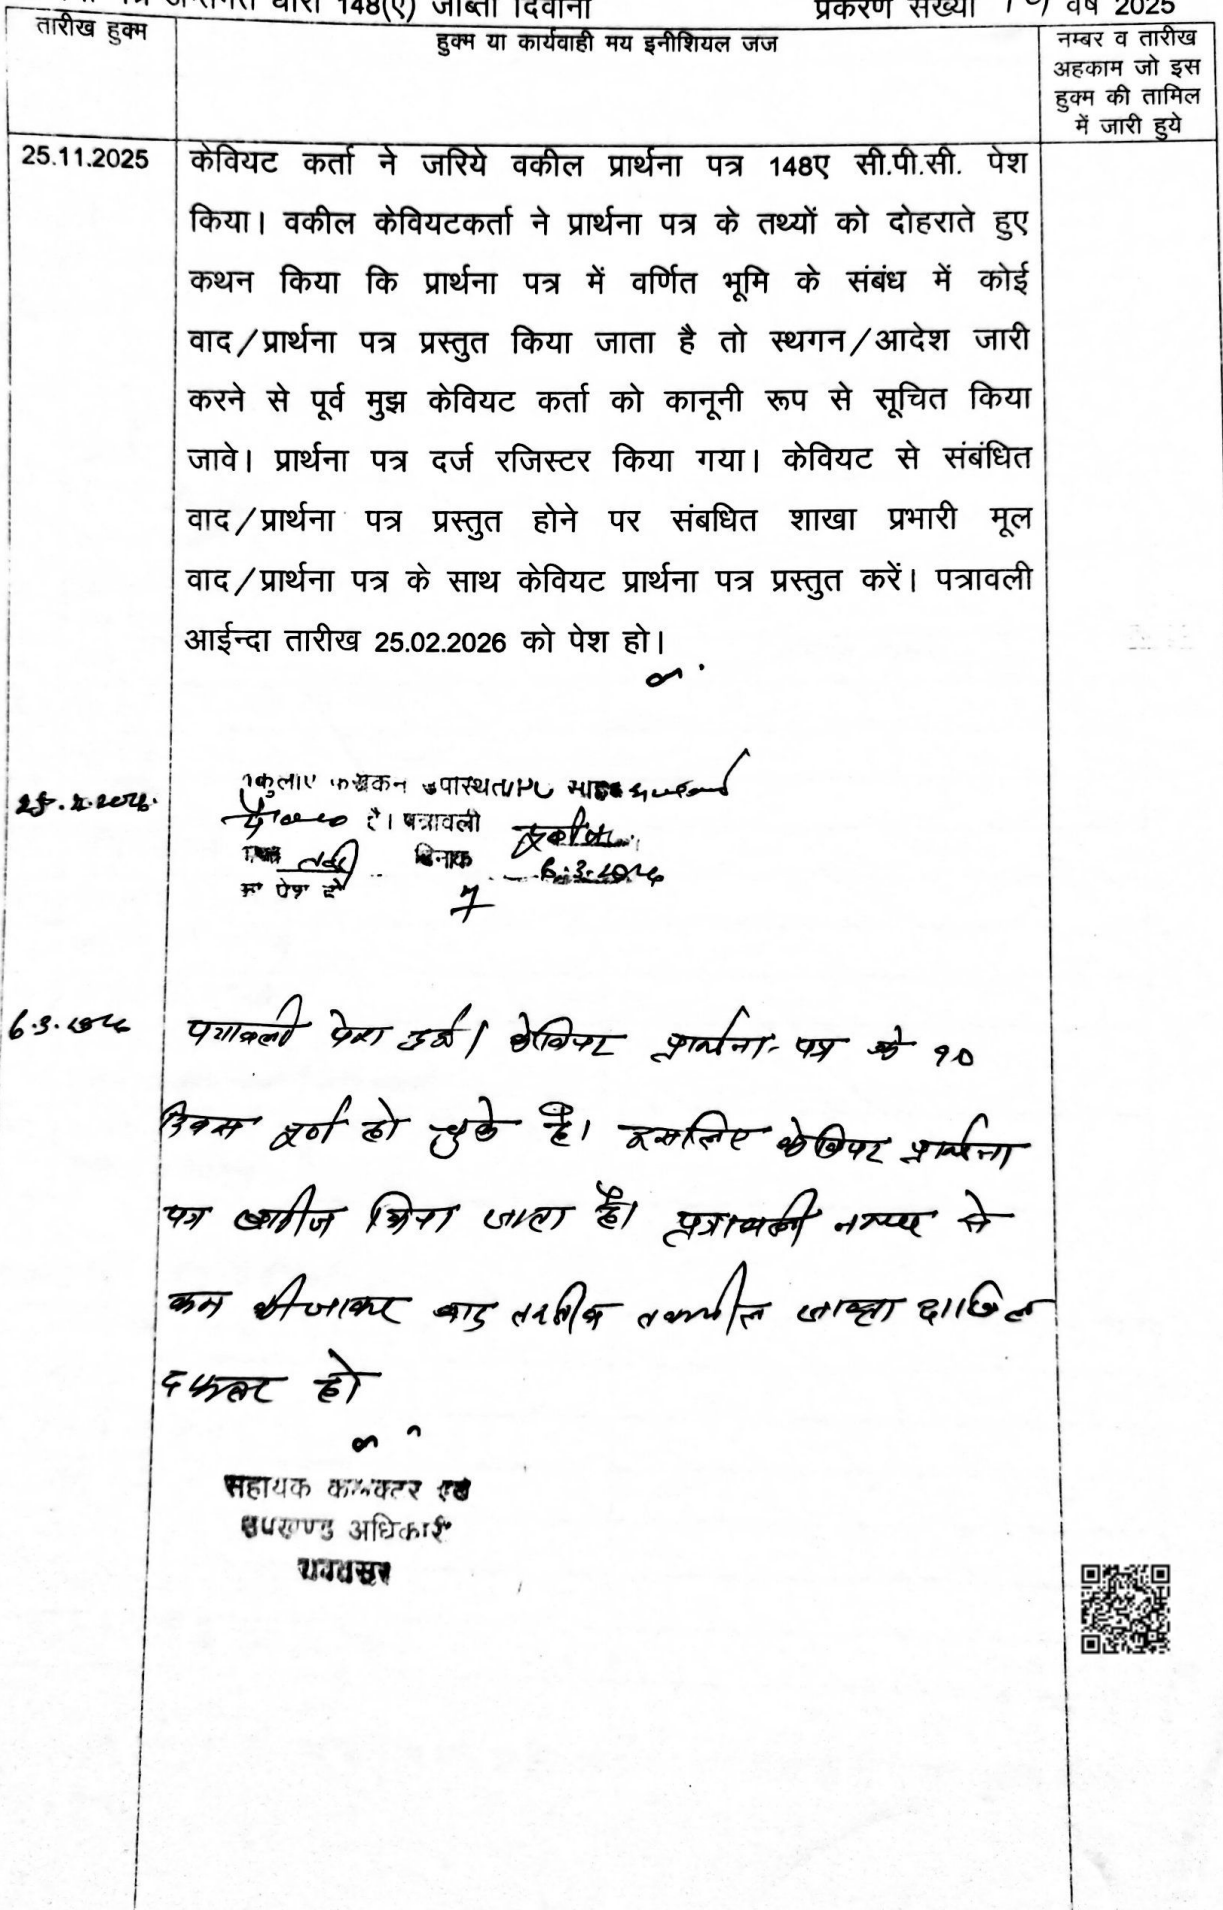 148(ए) जाब्ता दिवानी प्रकरण संख्या वर्ष 2025
तारीख हुक्म
हुक्म या कार्यवाही मय इनीशियल जज
नम्बर व तारीख
अहकाम जो इस
हुक्म की तामिल
में जारी हुये
25.11.2025
केवियट कर्ता ने जरिये वकील प्रार्थना पत्र 148ए सी.पी.सी. पेश
किया। वकील केवियटकर्ता ने प्रार्थना पत्र के तथ्यों को दोहराते हुए
कथन किया कि प्रार्थना पत्र में वर्णित भूमि के संबंध में कोई
वाद/प्रार्थना पत्र प्रस्तुत किया जाता है तो स्थगन/आदेश जारी
करने से पूर्व मुझ केवियट कर्ता को कानूनी रूप से सूचित किया
जावे। प्रार्थना पत्र दर्ज रजिस्टर किया गया। केवियट से संबंधित
वाद/प्रार्थना पत्र प्रस्तुत होने पर संबधित शाखा प्रभारी मूल
वाद/प्रार्थना पत्र के साथ केवियट प्रार्थना पत्र प्रस्तुत करें। पत्रावली
आईन्दा तारीख 25.02.2026 को पेश हो।
25.2.2026
है। पत्रावली
दिनांक 6.3.2026
पेश हो
6.3.2026
पत्रावली पेश हुई। केवियट प्रार्थना-पत्र के 90
दिवस पूर्ण हो चुके है। इसलिए केवियट प्रार्थना
पत्र खारीज किया जाता है। पत्रावली नम्बर से
कम की जाकर बाद तरतीब तकमील जाब्ता दाखिल
दफ्तर हो
सहायक कलक्टर एवं
उपखण्ड अधिकारी